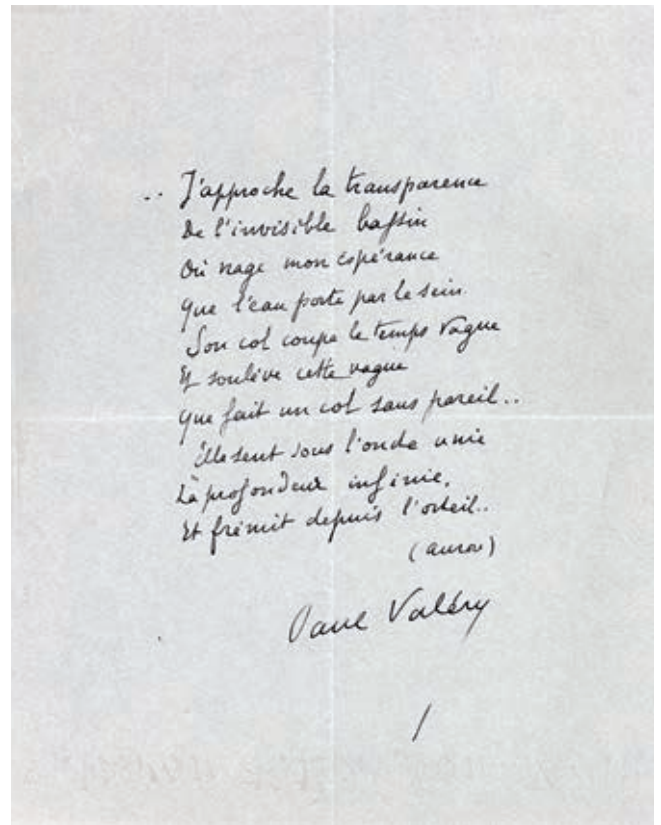 .. J'approche la transparence
De l'invisible bassin
Où nage mon espérance
Que l'eau porte par le sein.
Son col coupe le temps vague
Et soulève cette vague
Que fait un col sans pareil..
Elle sent sous l'onde unie
La profondeur infinie,
Et frémit depuis l'orteil..
(Aurore)
Paul Valéry
/